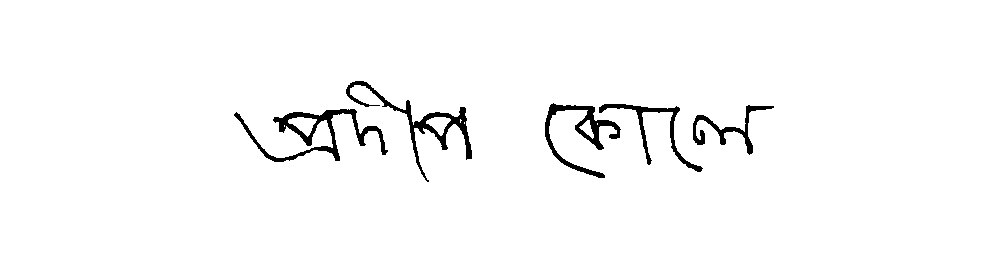 প্রদীপ কোলে